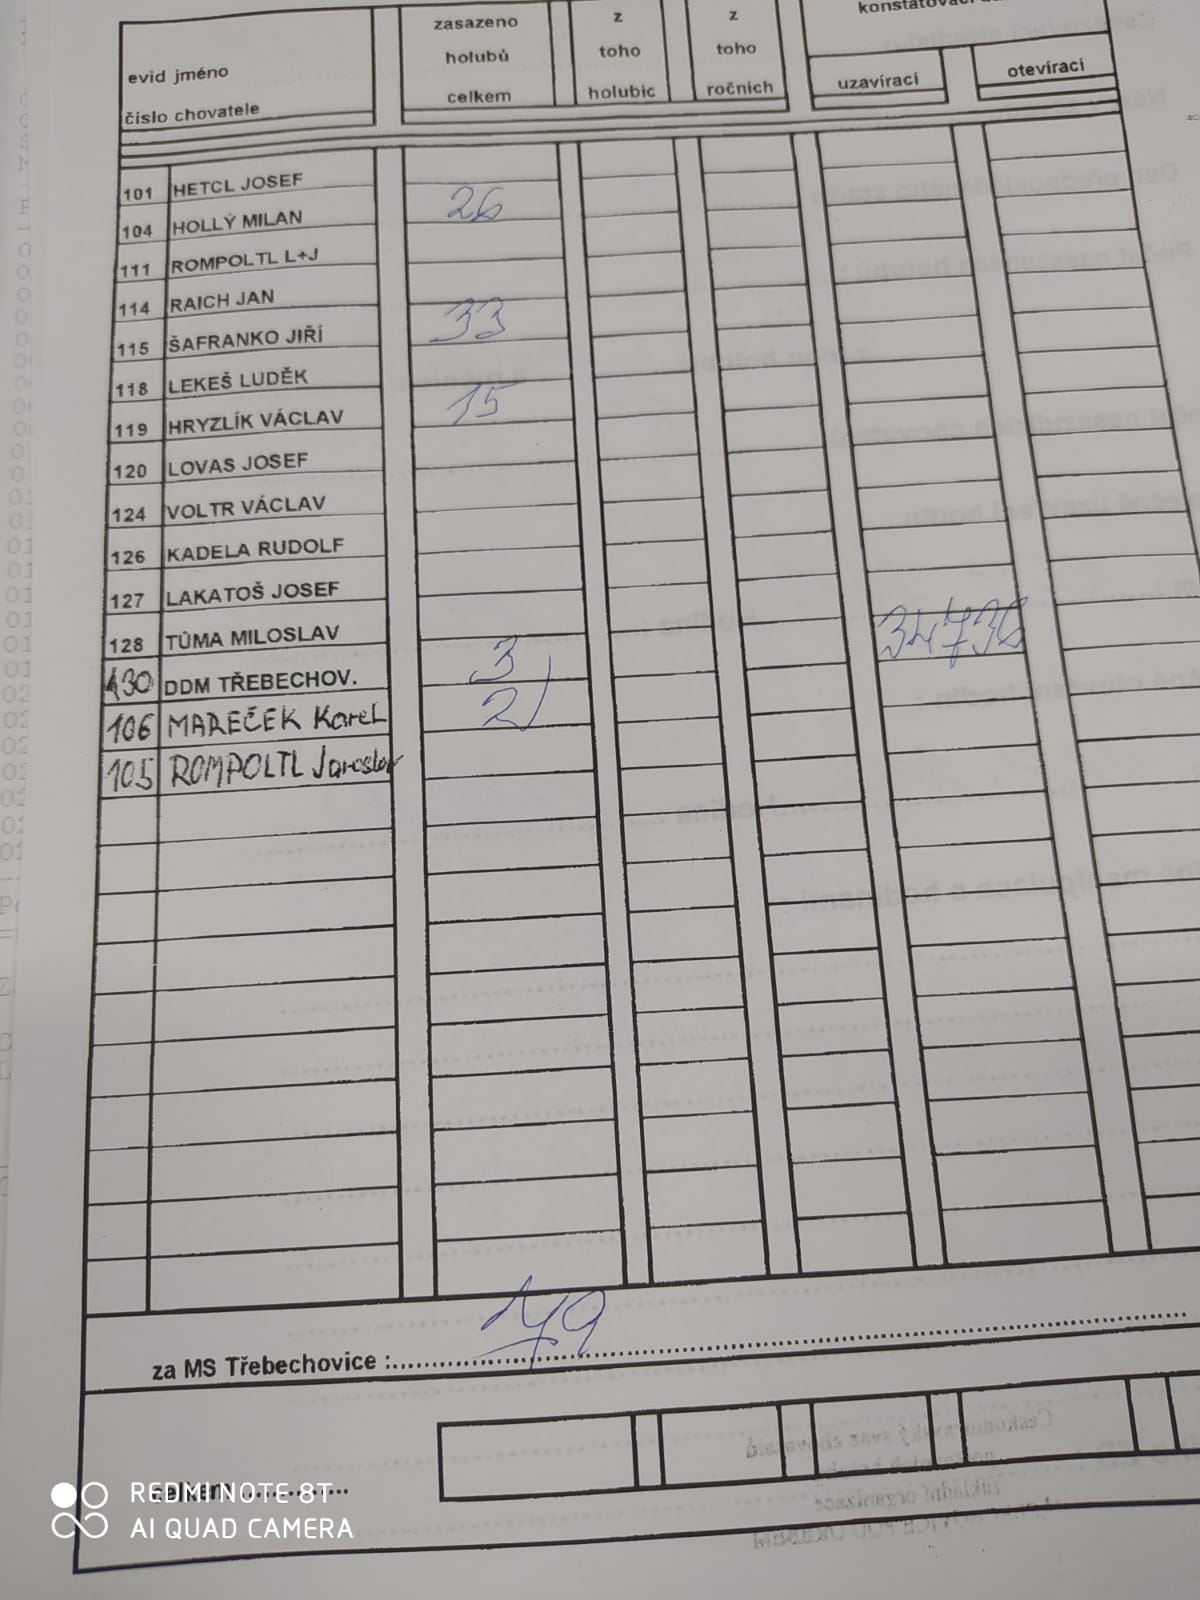 zasazeno z z
holubů toho toho
evid jméno celkem holubic ročních uzavírací otevírací
číslo chovatele
101 HETCL JOSEF
104 HOLLÝ MILAN 26
111 ROMPOLTL L+J
114 RAICH JAN
115 ŠAFRANKO JIŘÍ 33
118 LEKEŠ LUDĚK
119 HRYZLÍK VÁCLAV 15
120 LOVAS JOSEF
124 VOLTR VÁCLAV
126 KADELA RUDOLF
127 LAKATOŠ JOSEF
128 TŮMA MILOSLAV
130 DDM TŘEBECHOV. 3
106 MAREČEK Karel 2
105 ROMPOLTL Jaroslav
za MS Třebechovice : 79
REDMI NOTE 8T
AI QUAD CAMERA